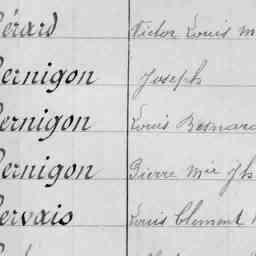 érard Victor Louis M
ernigon Joseph
ernigon Louis Bernard
ernigon Pierre Mie Jh
ervais Louis Clement